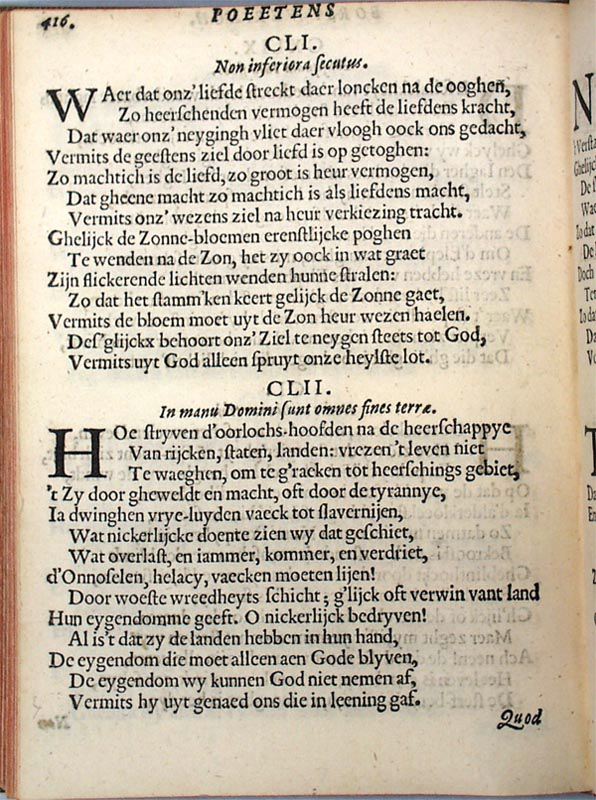 416. POEETENS
CLI.
Non inferiora ſecutus.
WAer dat onz' liefde ſtreckt daer loncken na de ooghen,
Zo heerſchenden vermogen heeft de liefdens kracht,
Dat waer onz' neygingh vliet daer vloogh oock ons gedacht,
Vermits de geeſtens ziel door liefd is op getoghen:
Zo machtich is de liefd, zo groot is heur vermogen,
Dat gheene macht zo machtich is als liefdens macht,
Vermits onz' wezens ziel na heur verkiezing tracht.
Ghelijck de Zonne-bloemen erenſtlijcke poghen
Te wenden na de Zon, het zy oock in wat graet
Zijn flickerende lichten wenden hunne ſtralen:
Zo dat het ſtamm'ken keert gelijck de Zonne gaet,
Vermits de bloem moet uyt de Zon heur wezen haelen.
Deſ'glijckx behoort onz' Ziel te neygen ſteets tot God,
Vermits uyt God alleen ſpruyt onze heylſte lot.
CLII.
In manu Domini ſunt omnes fines terræ.
HOe ſtryven d'oorlochs-hoofden na de heerſchappye
Van rijcken, ſtaten, landen: vrezen 't leven niet
Te waeghen, om te g'raeken tot heerſchings gebiet,
't Zy door gheweldt en macht, oft door de tyrannye,
Ia dwinghen vrye-luyden vaeck tot ſlavernijen,
Wat nickerlijcke doente zien wy dat geſchiet,
Wat overlaſt, en iammer, kommer, en verdriet,
d'Onnoſelen, helacy, vaecken moeten lijen!
Door woeſte wreedheyts ſchicht; g'lijck oft verwin vant land
Hun eygendomme geeft. O nickerlijck bedryven!
Al is't dat zy de landen hebben in hun hand,
De eygendom die moet alleen aen Gode blyven,
De eygendom wy kunnen God niet nemen af,
Vermits hy uyt genaed ons die in leening gaf.
Quod